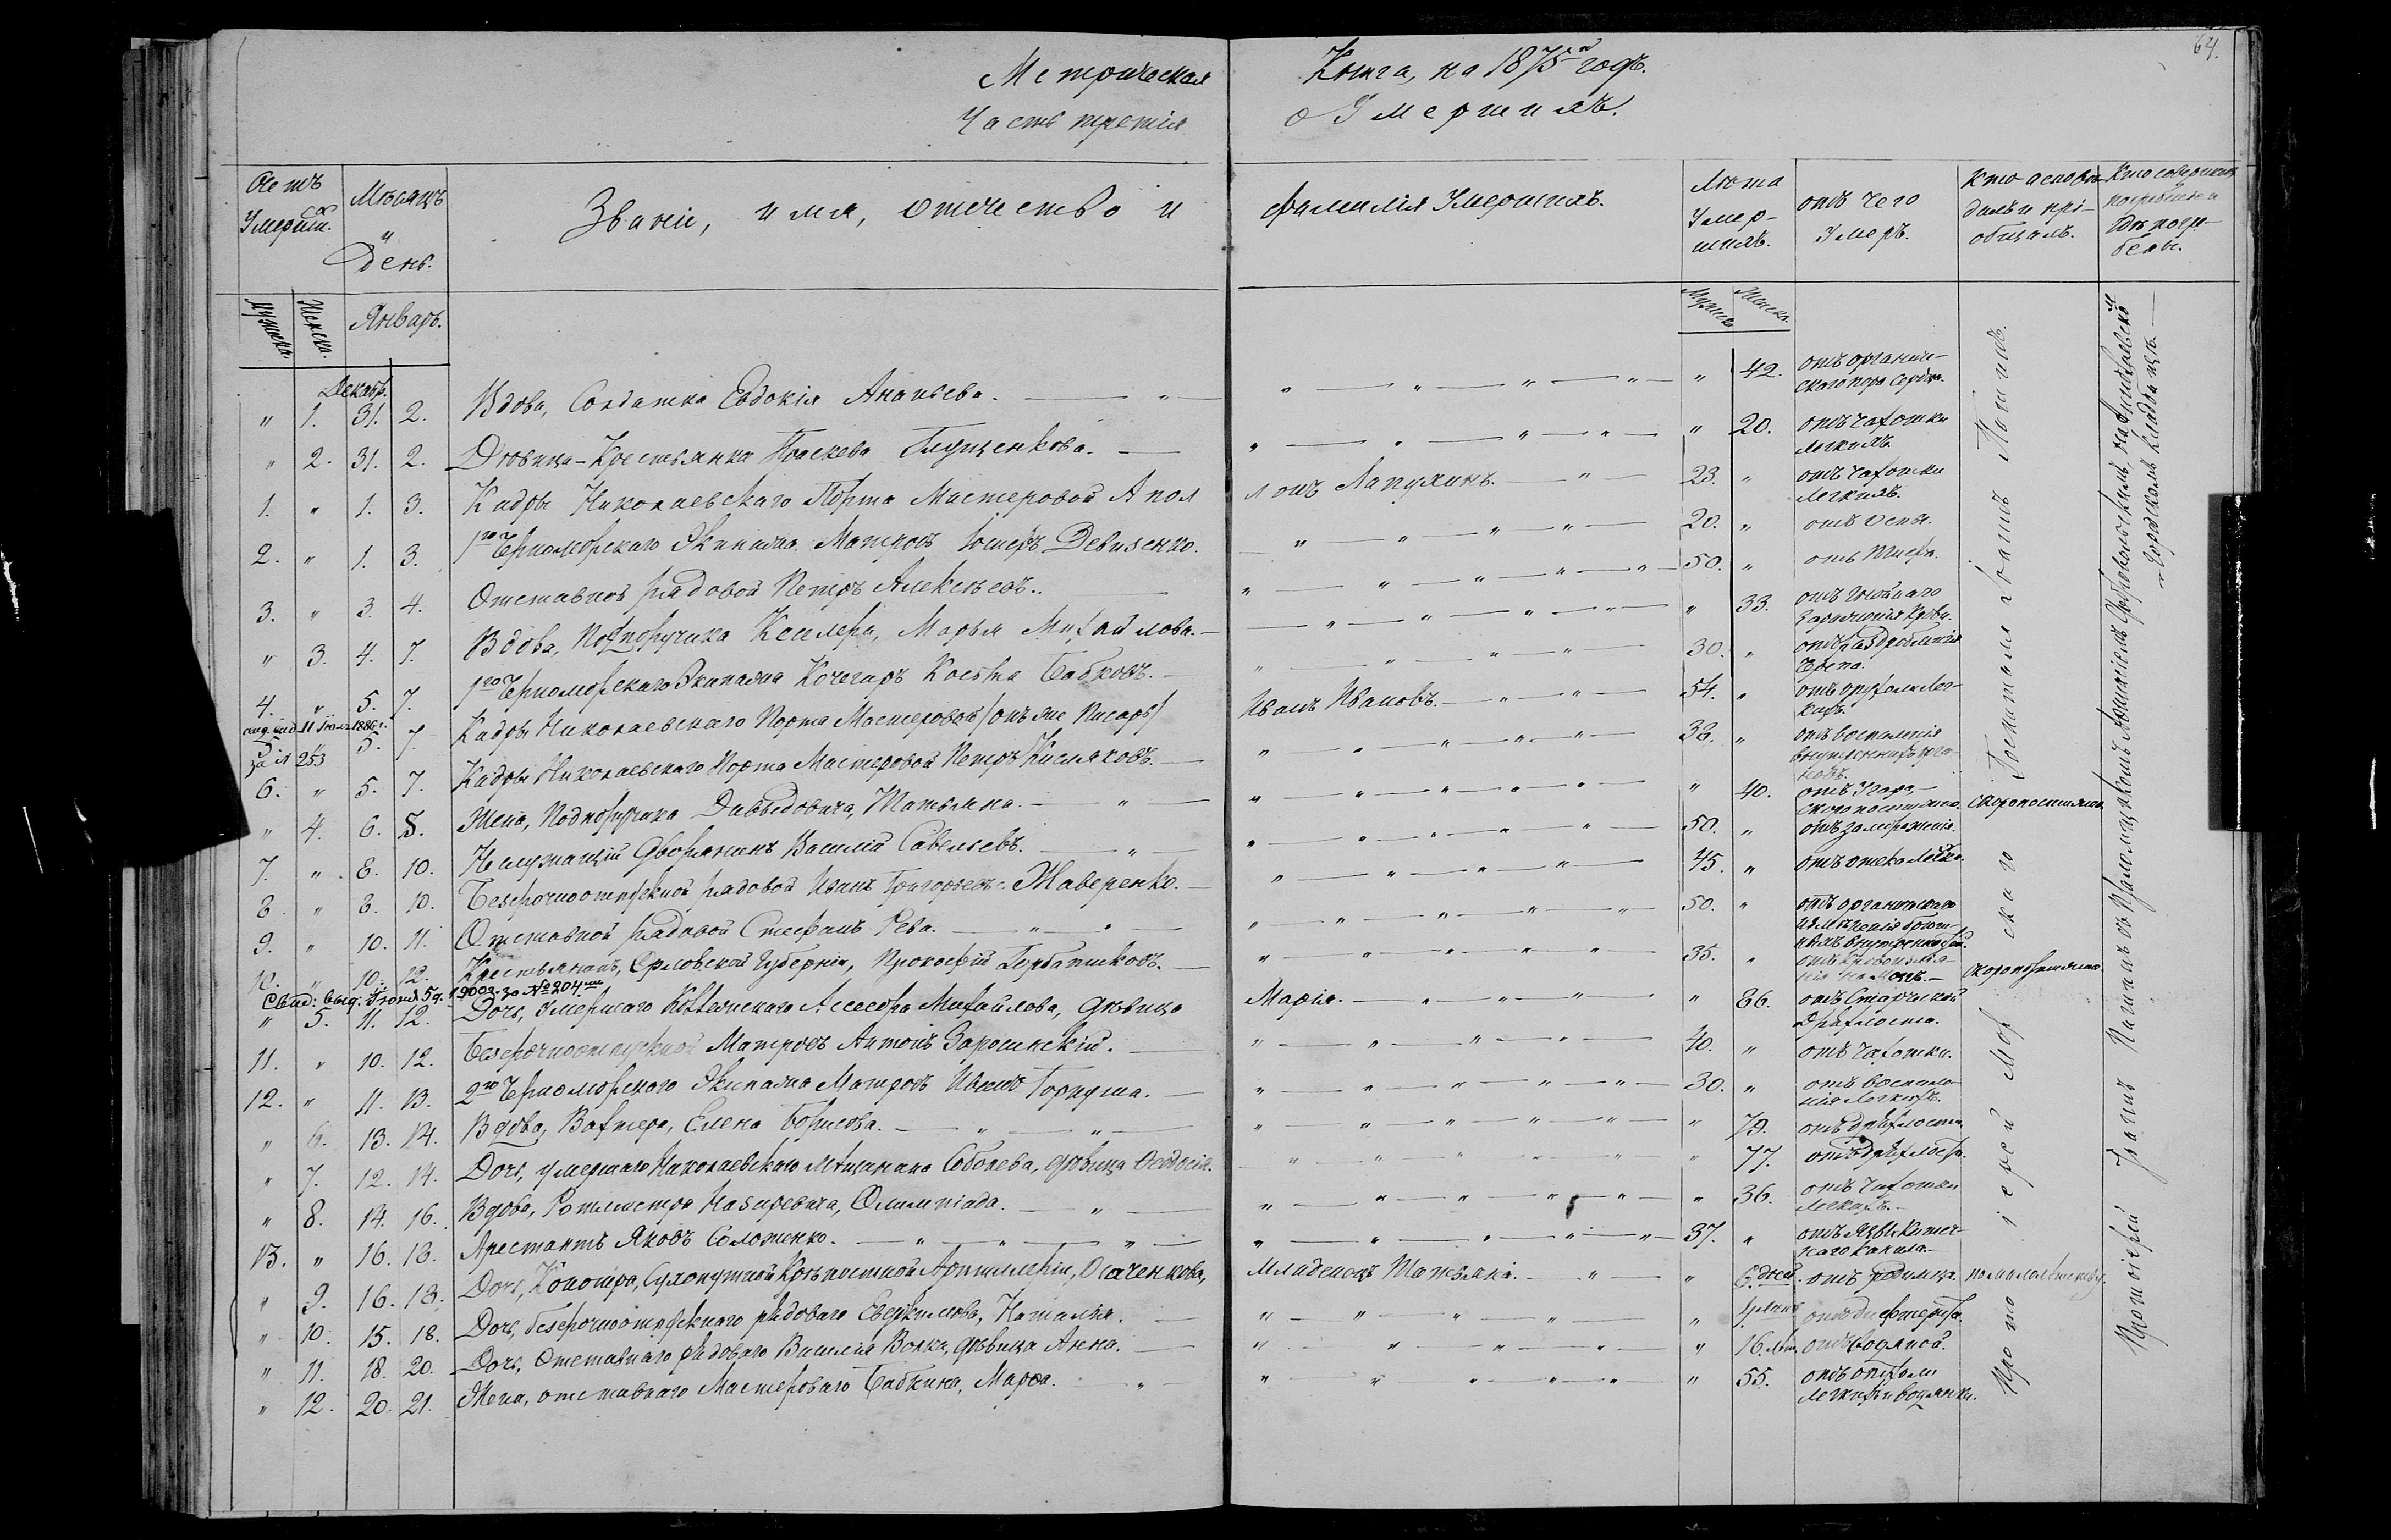 64.
Метрическая Книга, на 1875й годъ.
Часть третія о Умершихъ.
Счетъ Умерш.
Мѣсяцъ и День.
Званіе, имя, отчество и фамилія Умершихъ.
Лѣта Умер-шихъ.
отъ чего Умеръ.
Кто исповѣ-дывалъ и прі-общалъ.
Кто совершалъ погребеніе и гдѣ погре-бены.
Мужска. Женска. Январь. Мужска Женска.
Декабр.
" 1. 31. 2. Вдова, Солдатка Евдокія Ананьева. " 42. отъ органиче-скаго пор. Сердца.
" 2. 31. 2. Дѣвица-Крестьянка Праскева Глущенкова. " 20. отъ чахотки легкихъ.
1. " 1. 3. Кадры Николаевскаго Порта Мастеровой Апол лонъ Лапухинъ. 23. " отъ чахотки легкихъ.
2. " 1. 3. 1го Черноморскаго Экипажа Матросъ Іосифъ Девизенко. 20. " отъ оспы.
3. " 3. 4. Отставной рядовой Петръ Алексѣевъ. 50. " отъ Тифа.
" 3. 4. 7. Вдова, Подпоручика Кесслера, Марья Михайлова. " 33. отъ гнойнаго зараженія крови.
4. " 5. 7. 1го Черноморскаго Экипажа Кочегаръ Косьма Бабковъ. 30. " отъ раздробленія черепа.
вид. вид. 11 Іюля 1886 г.
за № 253
5. " 5. 7. Кадры Николаевскаго Порта Мастеровой /онъ же Писарь/ Иванъ Ивановъ. 54. " отъ бугорч. лег-кихъ.
6. " 5. 7. Кадры Николаевскаго Порта Мастеровой Петръ Кисляковъ. 38. " отъ воспаленія внутреннихъ орга-новъ.
" 4. 6. 8. Жена, Подпоручика Давыдовича, Татьяна. " 40. отъ Удара скоропостижно. скоропостижно.
7. " 8. 10. Неслужащій Дворянинъ Василій Савельевъ. 50. " отъ замерзанія.
8. " 8. 10. Безсрочноотпускной рядовой Иванъ Григорьевъ Жаверенко. 45. " отъ отека легк.
9. " 10. 11. Отставной рядовой Стефанъ Рева. 50. " отъ органическаго измѣненія брюш-ныхъ внутренностей.
10. " 10. 12. Крестьянинъ, Орловской Губерніи, Прокофій Горбатиковъ. 35. " отъ кровоизлія-нія въ мозгъ. скоропостижно.
Свид: выд. Іюня 5 д. 1900 г. за № 204мъ
" 5. 11. 12. Дочь, Умершаго Коллежскаго Ассесора Михайлова, дѣвица Марія. " 86. отъ Старческой Дряхлости.
11. " 10. 12. Безсрочноотпускной Матросъ Антонъ Заросинскій. 40. " отъ чахотки.
12. " 11. 13. 2го Черноморскаго Экипажа Матросъ Иванъ Горидша. 30. " отъ воспале-нія легкихъ.
" 6. 13. 14. Вдова, Вахтера, Елена Борисова. " 79. отъ дряхлости.
" 7. 12. 14. Дочь, умершаго Николаевскаго мѣщанина Соболева, дѣвица Ѳеодосія. " 77. отъ дряхлости.
" 8. 14. 16. Вдова, Ротмистра Назаревича, Олимпіада. " 36. отъ чахотки легкихъ.
13. " 16. 18. Арестантъ Яковъ Соложенко. 37. " отъ язвы кишеч-наго канала.
" 9. 16. 18. Дочь, Канонира, Сухопутной Крѣпостной Артиллеріи, Осаченкова, Младенецъ Татьяна. " 6 дней. отъ родимца. по малолѣтству.
" 10. 15. 18. Дочь, безсрочноотпускнаго рядоваго Евдокимова, Наталія. " 4 лѣтъ отъ дифтерита.
" 11. 18. 20. Дочь, Отставнаго рядоваго Василія Волка, дѣвица Анна. " 16. лѣт. отъ водяной.
" 12. 20. 21. Жена, отставнаго Мастероваго Бабкина, Марѳа. " 55. отъ опухоли легкихъ и водянки.
Протоіерей Морскаго Госпиталя Іоаннъ
Протоіерей Іоаннъ съ Псаломщикомъ на Николаевскомъ Городскомъ Кладбищѣ.